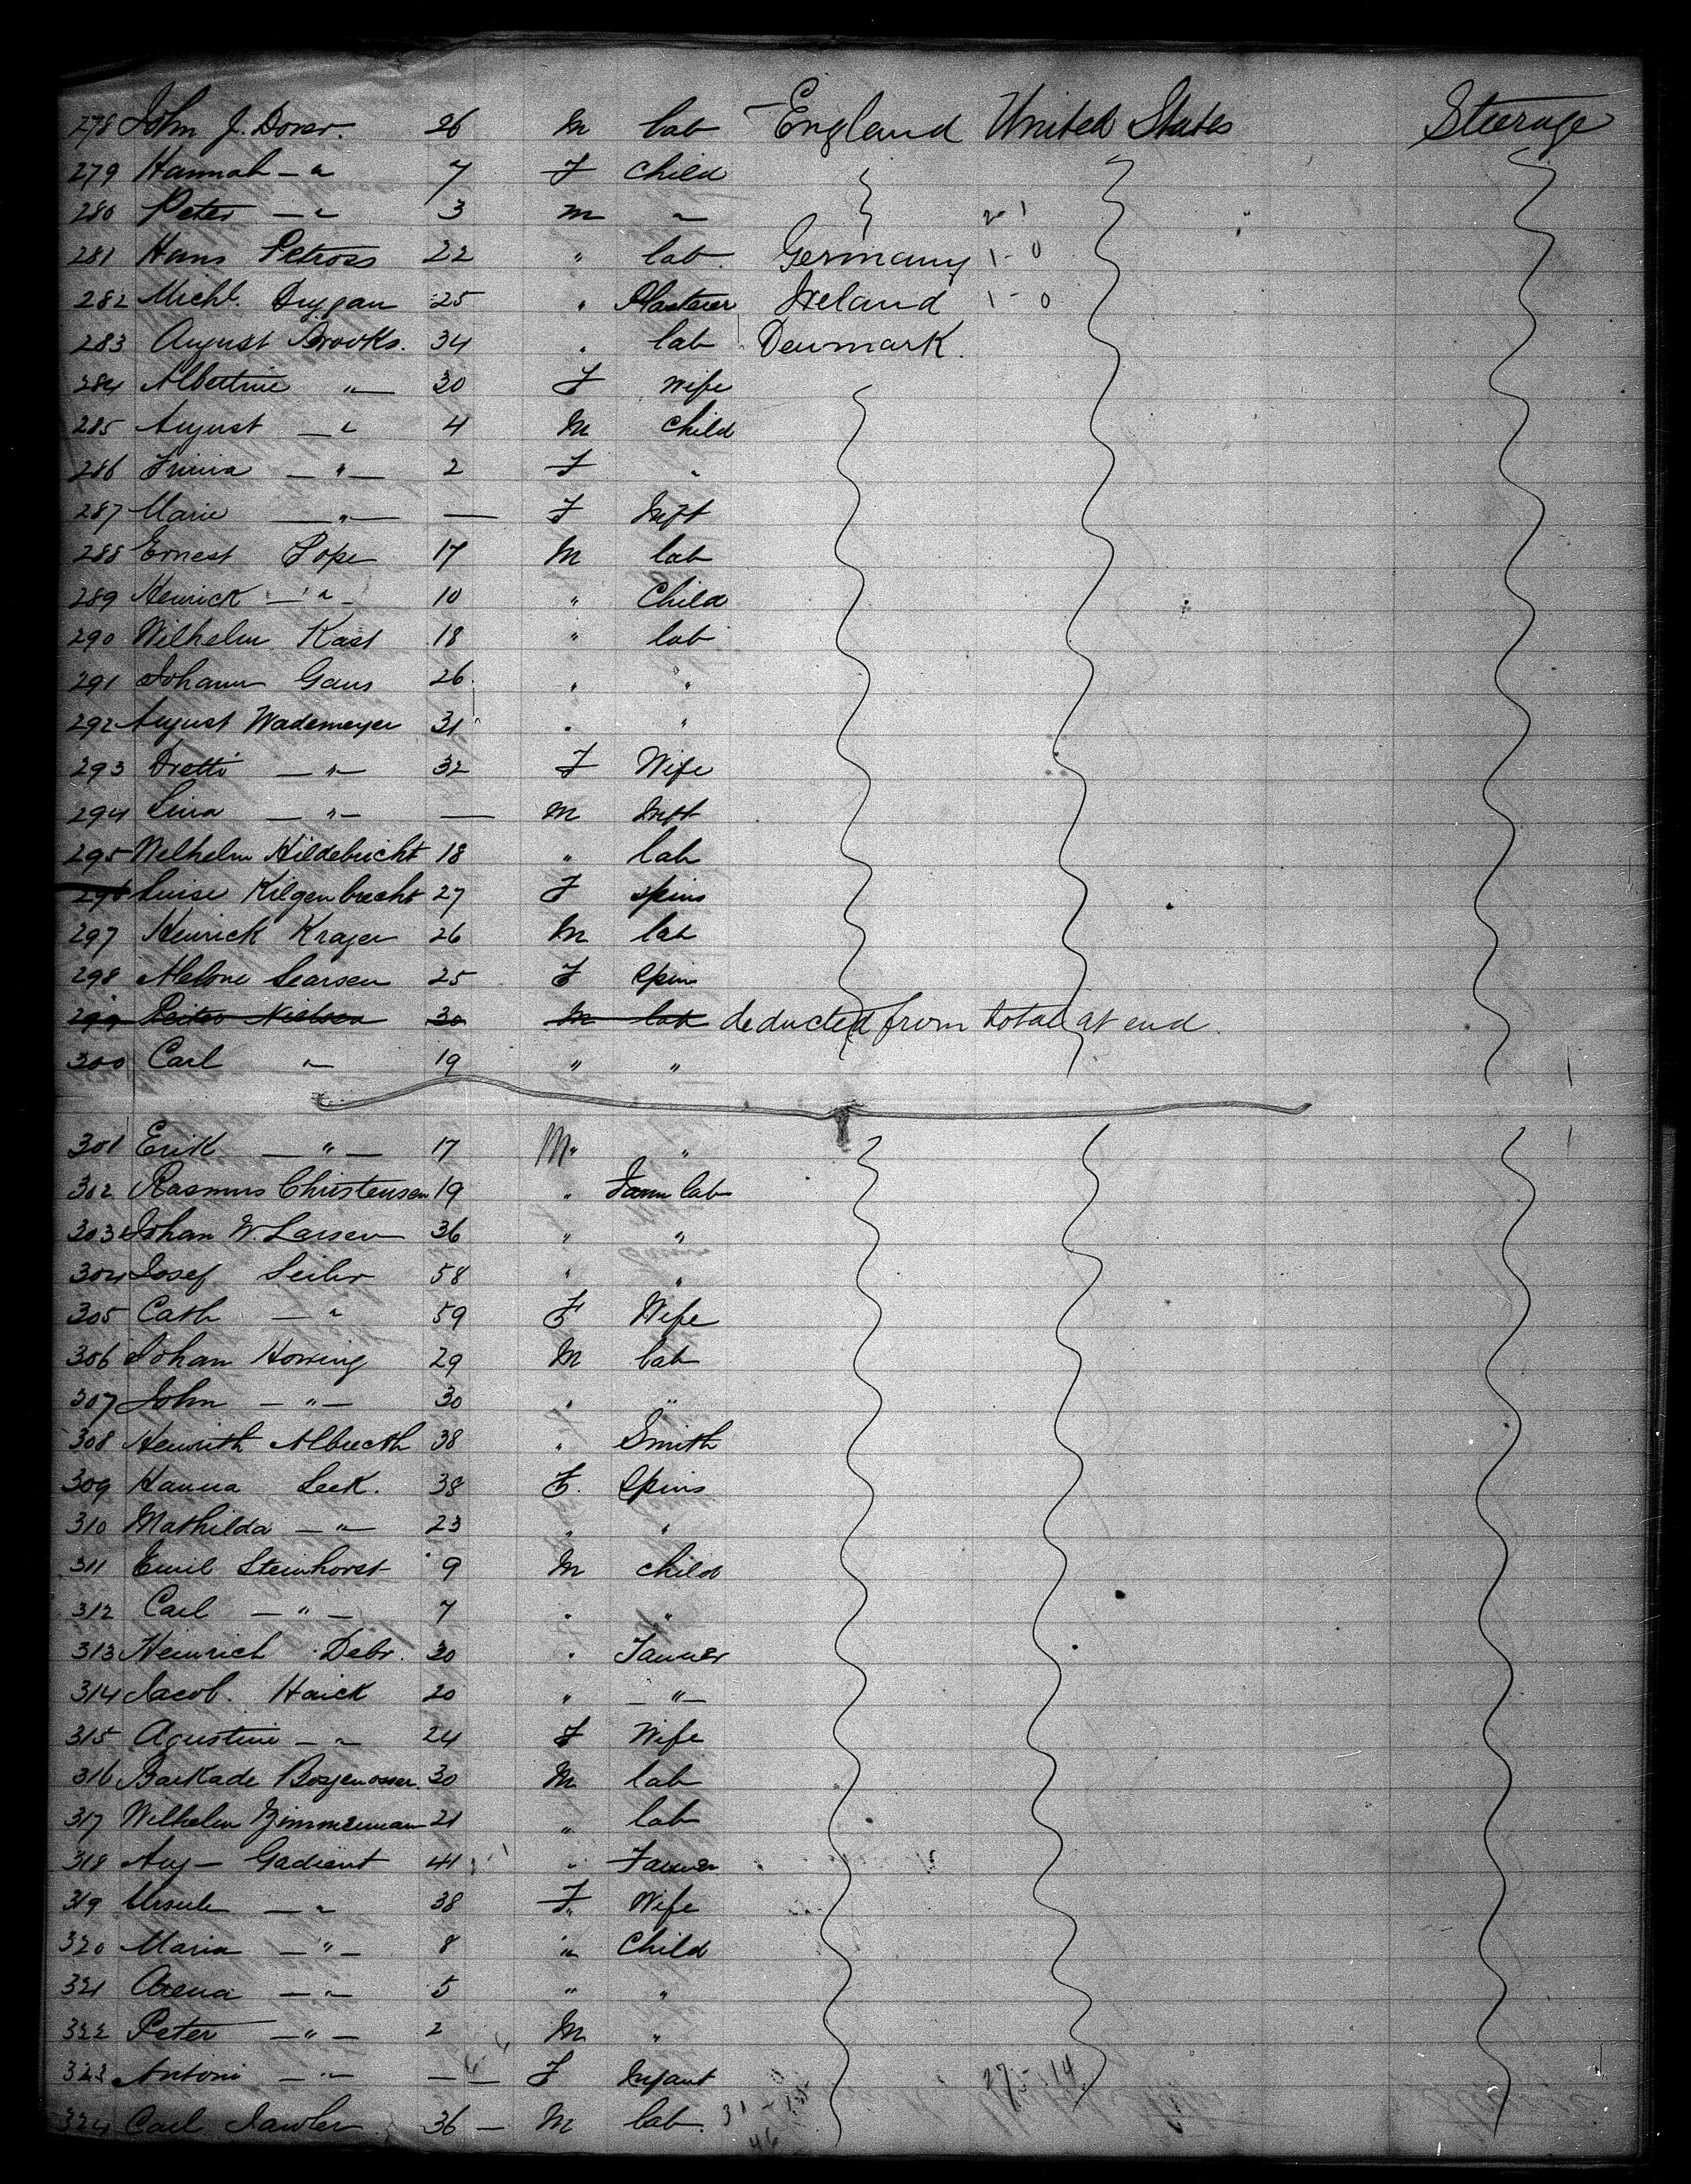 278 John J. Dover. 26 M lab England United States Steerage
279 Hannah — " 7 F Child
280 Peter — " 3 M " 2 1
281 Hans Petross 22 " lab. Germany 1 - 0
282 Michl. Duggan 25 " Plasterer Ireland 1 - 0
283 August Brooks. 34 " lab Denmark.
284 Albertine " — 30 F Wife
285 August — " 4 M Child
286 — " — 2 F "
287 Marie — " — — F Inft
288 Ernest Pope 17 M lab
289 Henrick — " - 10 " Child
290 Wilhelm Kast 18 " lab
291 Johann Gaus 26 " "
292 August Wademeyer 31 " "
293 Dretti — " — 32 F Wife
294 Lina — " — — M Inft
295 Wilhelm Hildebricht 18 " lab
296 Luise Kilgenbrecht 27 F Spins
297 Henrick Krager 26 M lab
298 Larsen 25 F Spins
299 Peiter Nielsen 30 M lab deducted from total at end.
300 Carl " 19 " "
301 Erik — " — 17 M " "
302 Rasmus Christensen 19 " Farm lab
303 Johan W. Larsen 36 " "
304 Josef Seiler 58 " "
305 Cath — " 59 F Wife
306 Johan Howing 29 M lab
307 John — " — 30 " "
308 Henrith Albrecth 38 " Smith
309 Hanna Seek. 38 F. Spins
310 Mathilda — " — 23 " "
311 Emil Steinhorst 9 M Child
312 Carl — " — 7 " "
313 Heinrich Debr. 30 " Farmer
314 Jacob. Haick 20 " — " —
315 Agustine — " 24 F Wife
316 Barkade 30 M lab
317 Wilhelm Zimmerman 21 " lab
318 Aug — Gadient 41 " Farmer
319 Ursule — " 38 F " Wife
320 Maria — " — 8 " Child
321 — " — 5 " "
322 Peter — " — 2 M "
323 Antoni — " — — F Infant 27 - 14
324 Carl 36 — M lab. 31 - 15
46